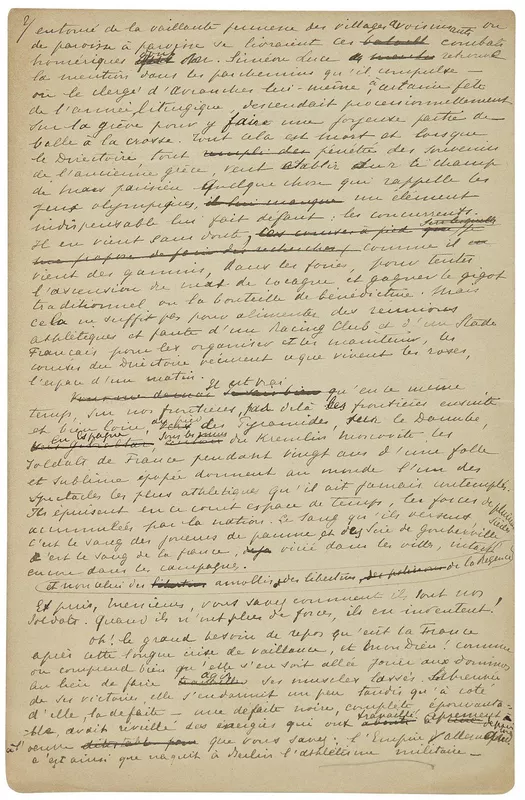 2/ entouré de la vaillante jeunesse des villages voisins ou
de paroisse à paroisse se livraient ces combats
homériques dont Mr. Siméon Luce a retrouvé
la mention dans les parchemins qu'il compulse —
où le clergé d'Avranches lui-même à certaine fête
de l'année liturgique descendait processionnellement
sur la grève pour y faire une joyeuse partie de
balle à la crosse. Tout cela est mort et lorsque
le Directoire, tout pénétré des souvenirs
de l'ancienne grèce, veut établir sur le champ
de mars parisien quelque chose qui rappelle les
jeux olympiques, un élément
indispensable lui fait défaut : les concurrents.
Il en vient sans doute, comme il
vient des gamins, dans les foires, pour tenter
l'ascension du mat de cocagne et gagner le gigot
traditionnel ou la bouteille de bénédictine. Mais
cela ne suffit pas pour alimenter des réunions
athlétiques et faute d'un Racing Club et d'un Stade
Français pour les organiser et les maintenir, les
courses du Directoire vécurent ce que vivent les roses,
l'espace d'un matin.
Il est vrai qu'en ce même
temps, sur nos frontières, par delà les frontières ensuite
et bien loin, au pied des Pyramides, sur le Danube,
en Espagne, sous les murs du Kremlin moscovite les
soldats de France pendant vingt ans d'une folle
et sublime épopée donnent au monde l'un des
spectacles les plus athlétiques qu'il ait jamais contemplés.
Ils épuisent en ce court espace de temps, les forces
accumulées par la nation. Le sang qu'ils versent
c'est le sang des joueurs de paume et des Sire de Gouberville
c'est le sang de la france, vicié dans les villes, intact
encore dans les campagnes.
et non celui des amollis, des libertins, de la Régence
Et puis, Messieurs, vous savez comment ils sont nos
soldats. Quand ils n'ont plus de forces, ils en inventent !
Oh ! le grand besoin de repos qu'eut la France
après cette longue crise de vaillance, et mon Dieu ! comme
on comprend bien qu'elle s'en soit allée jouer aux Dominos
au lieu de faire agir ses muscles lassés.
de ses victoires, elle s'endormit un peu tandis qu'à côté
d'elle, la défaite — une défaite noire, complète, épouvanta-
-ble, avait réveillé des énergies qui ont travaillé
oeuvre que vous savez : l'Empire allemand
c'est ainsi que naquit à Berlin l'athlétisme militaire —